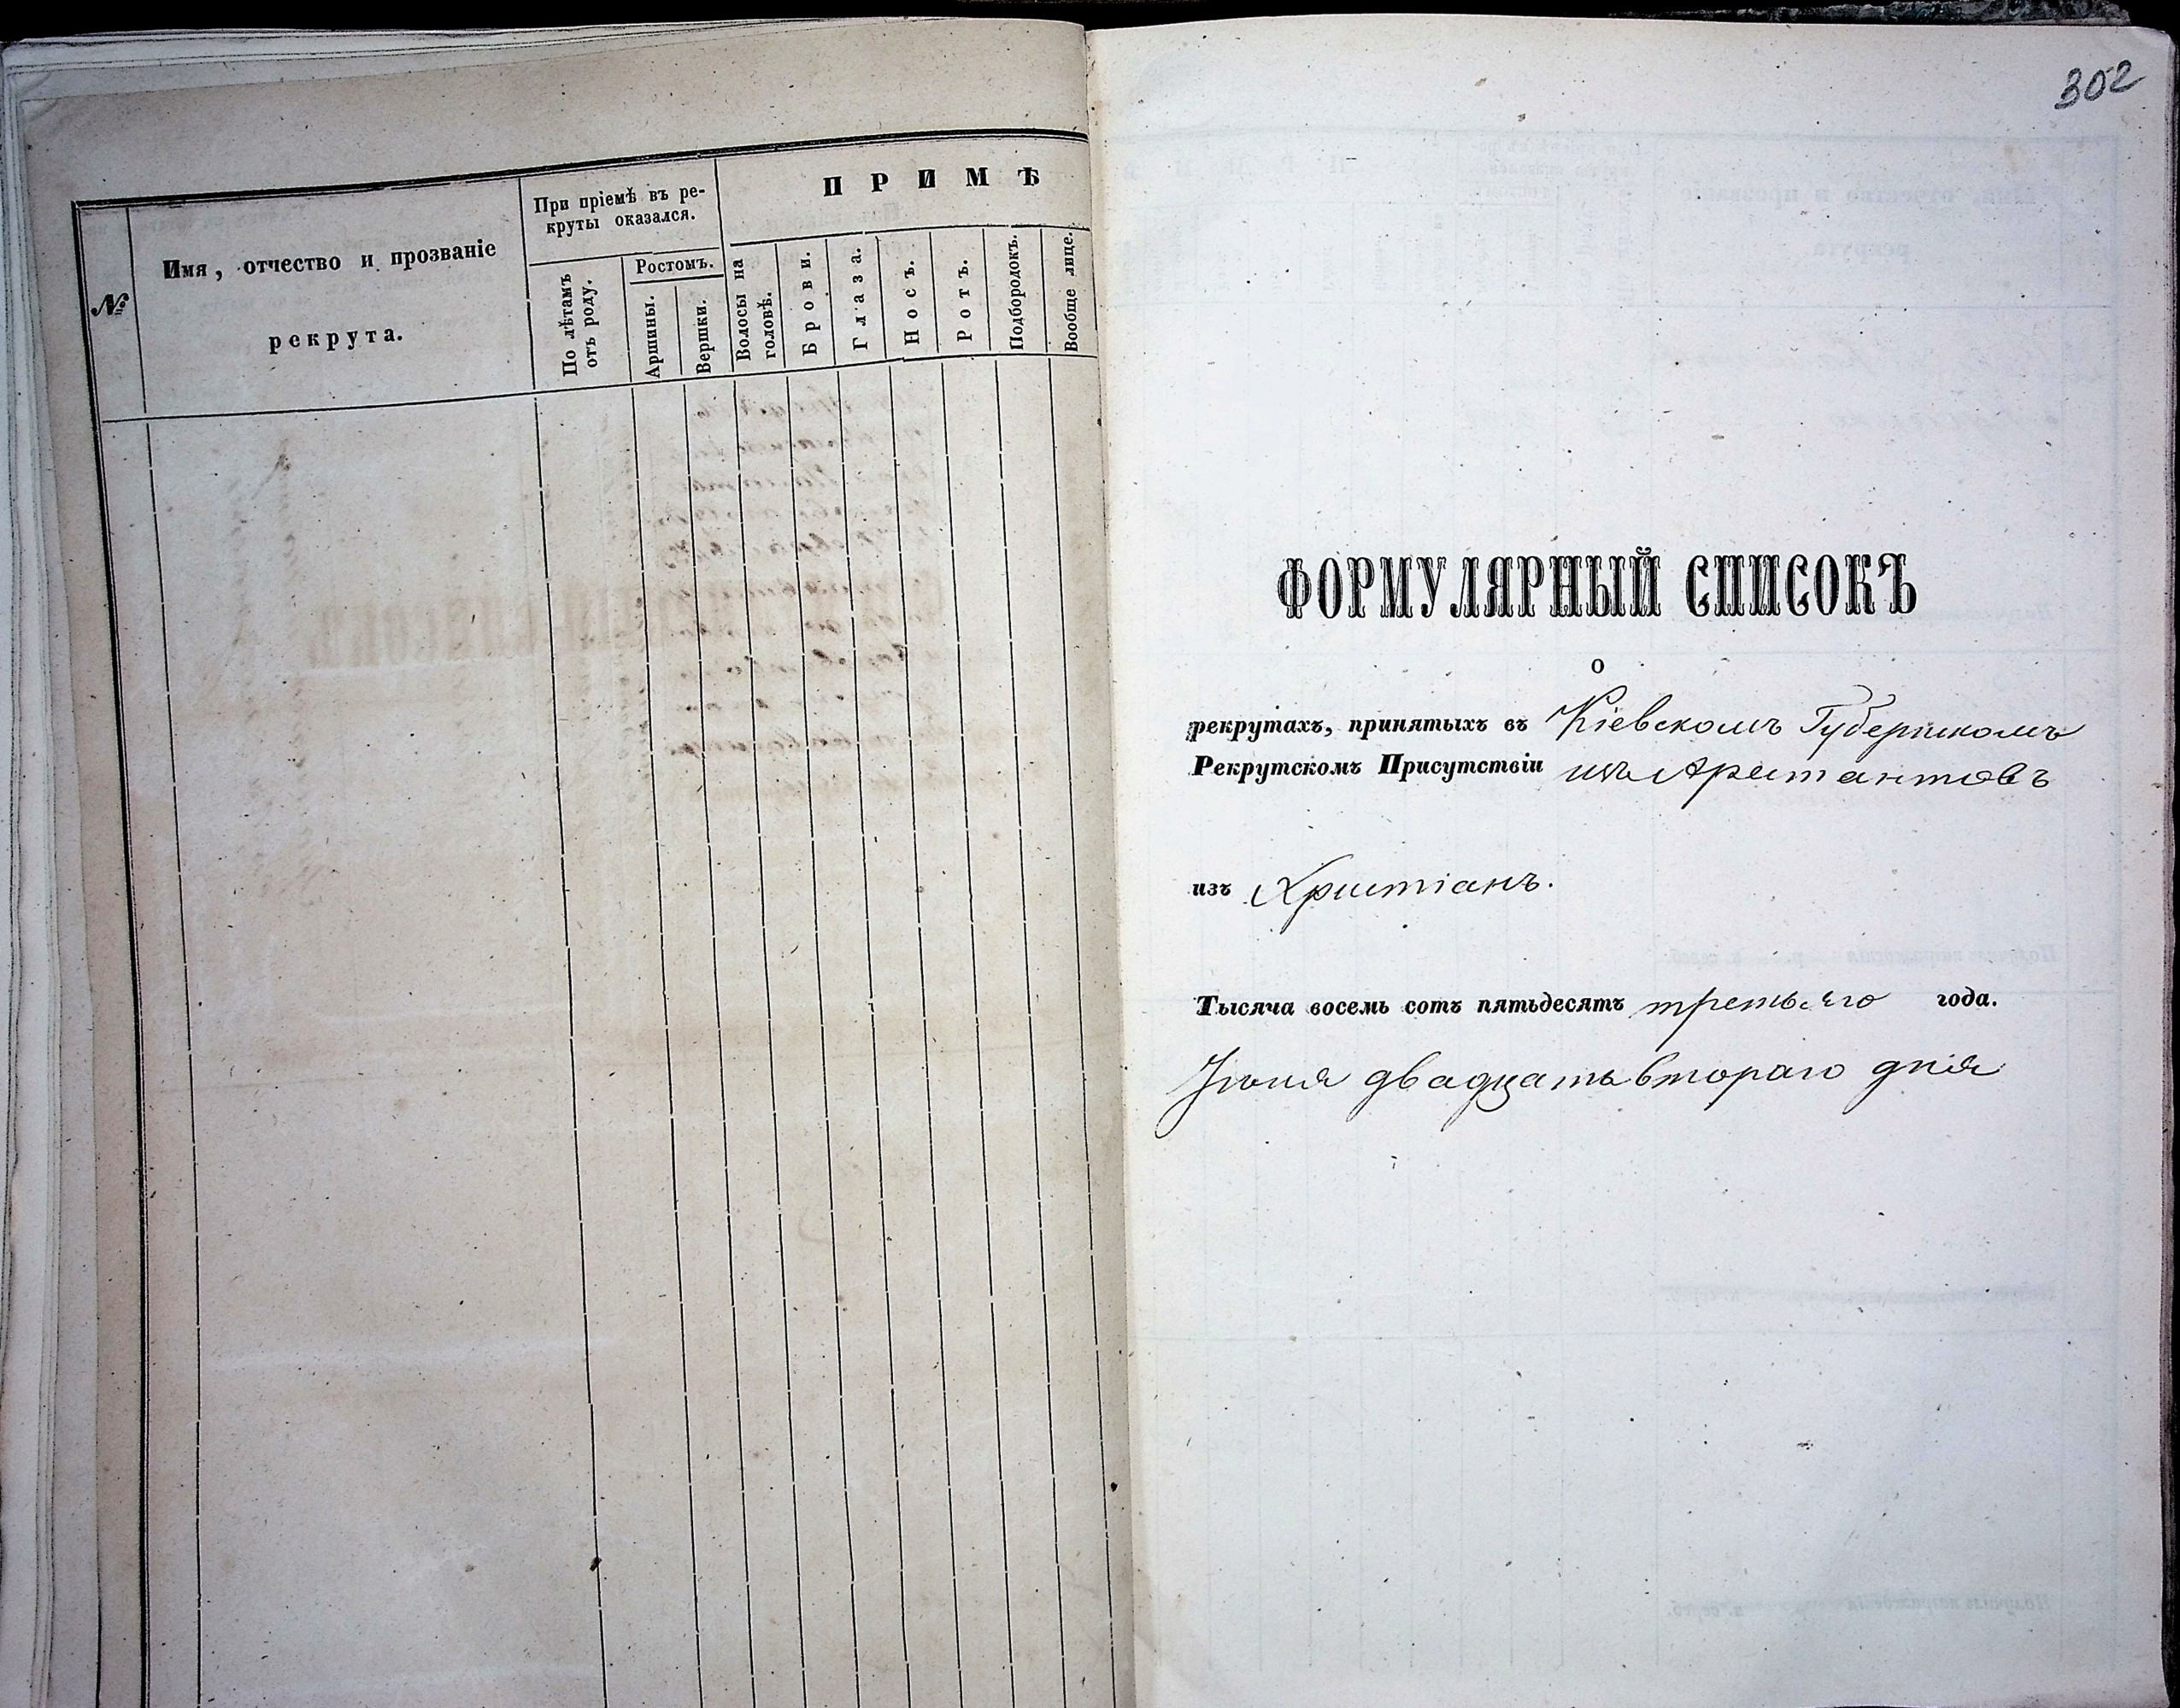 №
Имя, отчество и прозваніе
рекрута.
При пріемѣ въ ре-
круты оказался.
По лѣтамъ
отъ роду.
Ростомъ.
Аршины.
Вершки.
П Р И М Ѣ
Волосы на
головѣ.
Брови.
Глаза.
Носъ.
Ротъ.
Подбородокъ.
Вообще лице.
302
ФОРМУЛЯРНЫЙ СПИСОКЪ
о
рекрутахъ, принятыхъ въ Кіевскомъ Губернскомъ
Рекрутскомъ Присутствіи изъ Арестантовъ
изъ Христіанъ.
Тысяча восемь сотъ пятьдесятъ третьяго года.
Іюня двадцать втораго дня